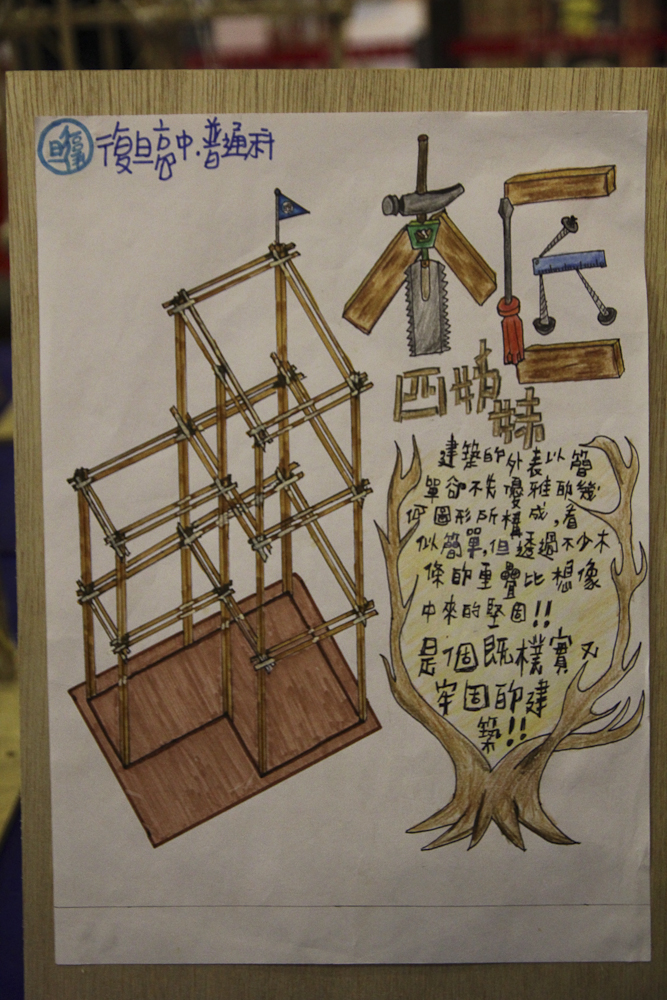 復旦高中.普通科
木匠
四姊妹
建築的外表以簡
單卻不失優雅的幾
何圖形所構成,看
似簡單,但透過不少木
條的重疊比想像
中來的堅固!!
是個既樸實又
牢固的建
築!!